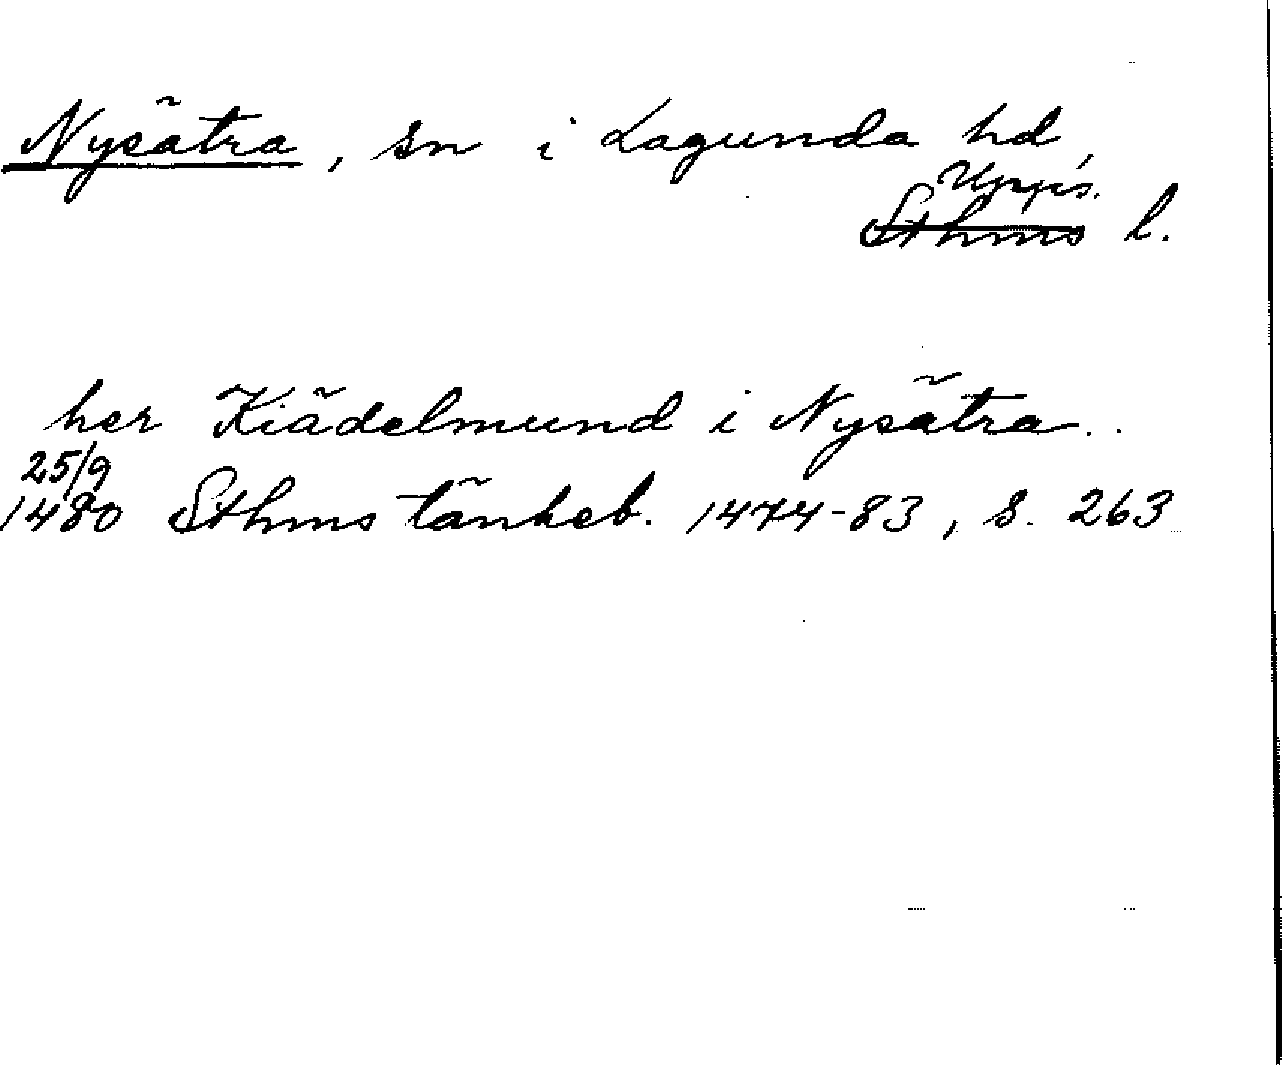 Nysätra, sn i Lagunda hd,
Upps.
Sthms l.
her Kiädelmund i Nysätra..
25/9
1480 Sthms tänkeb. 1474-83, s. 263